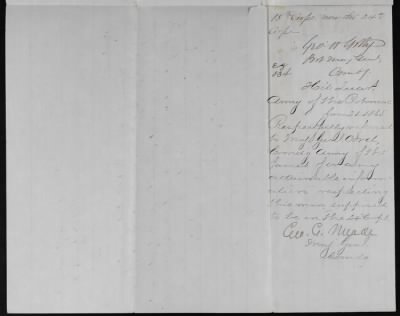 18th Corps now the 24th
Corps
Geo. W. Getty
Bvt Maj Genl
Comdg
Hd Quars
Army of the Potomac
Jany 21 1865
Respectfully referred
to Maj Genl Ord
Comdg Army of the
James for any
information
respecting
this man supposed
to be in the 24 Corps
Geo. G. Meade
Maj Genl
Comdg